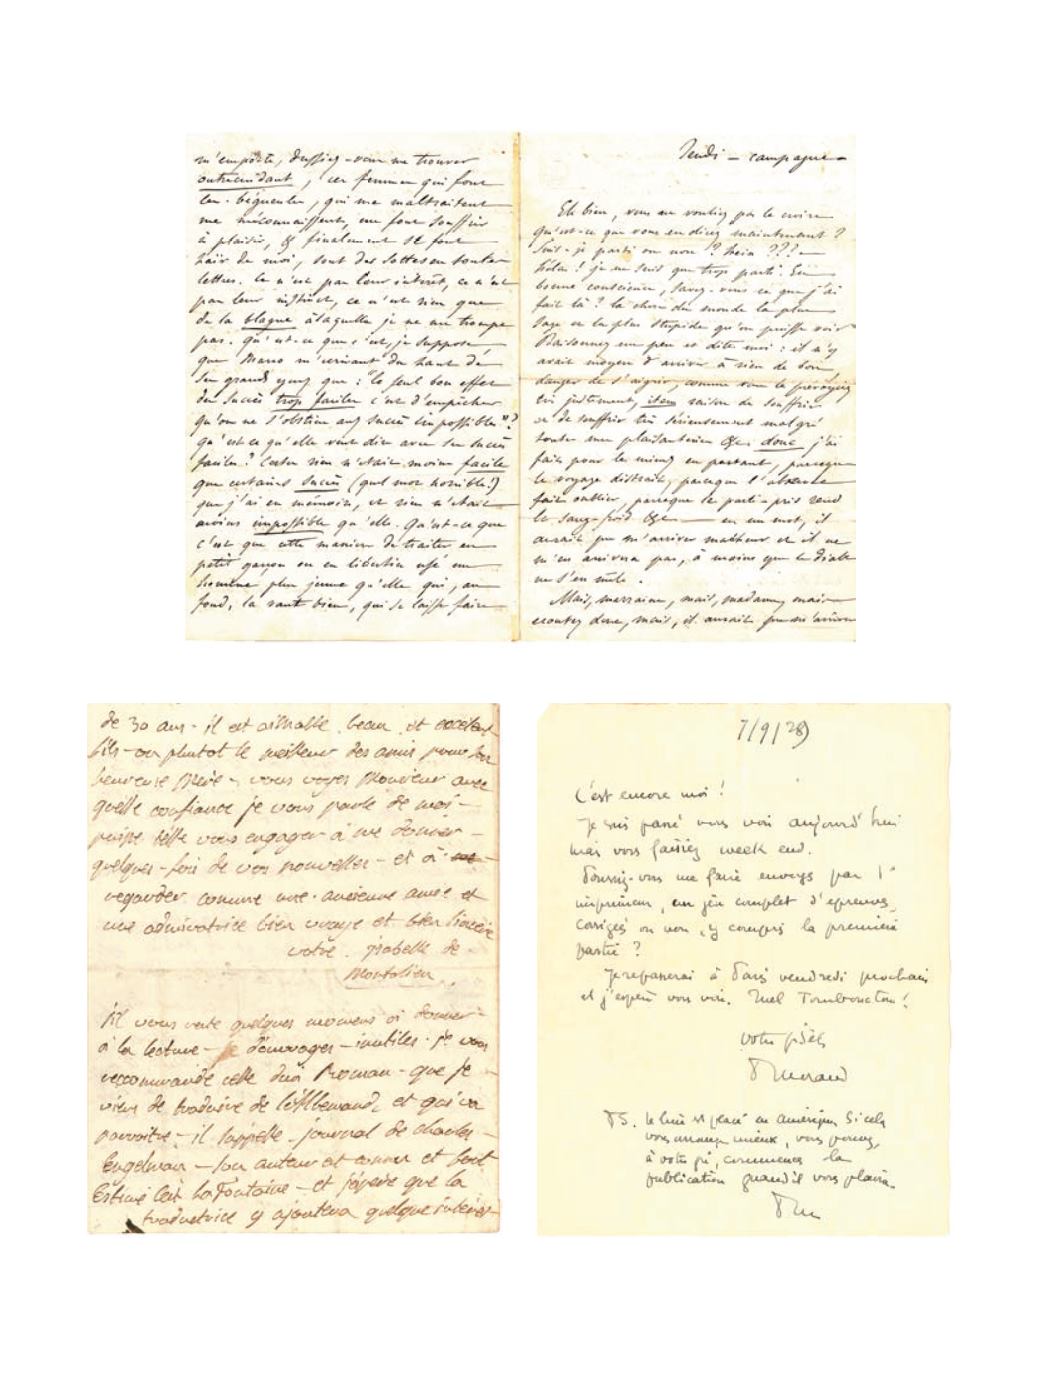 m'emporte, dussiez-vous me trouver
outrecuidant, ces femmes qui font
les bégueules, qui me maltraitent
me méconnaissent, me font souffrir
à plaisir, & finalement se font
haïr de moi, sont des sottes en toutes
lettres. Ce n'est pas leur intérêt, ce n'est
pas leur instinct, ce n'est rien que
de la blague à laquelle je ne me trompe
pas. Qu'est-ce que c'est, je suppose
que Marco m'écrivant du haut de
ses grands que : "le seul bon effet
des succès trop faciles c'est d'empêcher
qu'on ne s'obstine aux succès impossibles" ?
qu'est-ce qu'elle veut dire avec ses succès
faciles ? Certes rien n'était moins facile
que certains succès (quel mot horrible !)
que j'ai en mémoire, et rien n'était
moins impossible qu'elle. Qu'est-ce que
c'est que cette manière de traiter en
petit garçon ou en libertin usé un
homme plus jeune qu'elle qui, au
fond, la vaut bien, qui se laisse faire
Jeudi — campagne —
Eh bien, vous ne vouliez pas le croire
qu'est-ce que vous en direz maintenant ?
Suis-je parti ou non !? hein ???
Hélas ! je ne suis que trop parti. En
bonne conscience, savez-vous ce que j'ai
fait là ? la chose du monde la plus
sage et la plus stupide qu'on puisse voir
Raisonnez un peu et dites moi : il n'y
avait moyen d'arriver à rien de bon
danger de s'aigrir, comme vous le prévoyiez
très justement, item raison de souffrir
et de souffrir très sérieusement malgré
toutes mes plaisanteries &c; donc j'ai
fait pour le mieux en partant, parceque
le voyage distrait, parceque l'absence
fait oublier, parceque le parti-pris rend
le sang-froid &c — en un mot, il
aurait pu m'arriver malheur et il ne
m'en arrivera pas, à moins que le diable
ne s'en mêle.
Mais, marraine, mais, madame, mais
écoutez donc, mais, il aurait pu m'arriver
de 30 ans - il est aimable, beau, et excellent
fils - ou plutot le meilleur des amis pour son
heureuse Mère - vous voyes Monsieur avec
quelle confiance je vous parle de moi -
puisse t'elle vous engager à me donner -
quelques-fois de vos nouvelles - et à
regarder comme une ancienne amie et
une admiratrice bien vraye et bien sincère
votre Isabelle de
Montolieu
S'il vous reste quelques momens à donner
à la lecture - je d'ouvrages - inutiles - je vous
recommande celle d'un Roman - que je
viens de traduire de l'Allemand, et qui va
parroitre - il s'appelle - journal de charles -
Engelman - son auteur et connu et fort
Estimé c'est La Fontaine - et j'espère que la
traductrice y ajoutera quelque intérêt
7/9/28
C'est encore moi !
Je suis passé vous voir aujourd'hui
mais vous faisiez week end.
Pourriez-vous me faire envoyer par l'
imprimeur, un jeu complet d'épreuves,
corrigés ou non, y compris la première
partie ?
Je repasserai à Paris vendredi prochain
et j'espère vous voir. Quel Tombouctou !
Votre fidèle
PMorand
PS. Le livre est placé en Amérique. Si cela
vous arrange mieux, vous pouvez,
à votre gré, commencer la
publication quand il vous plaira.
PM